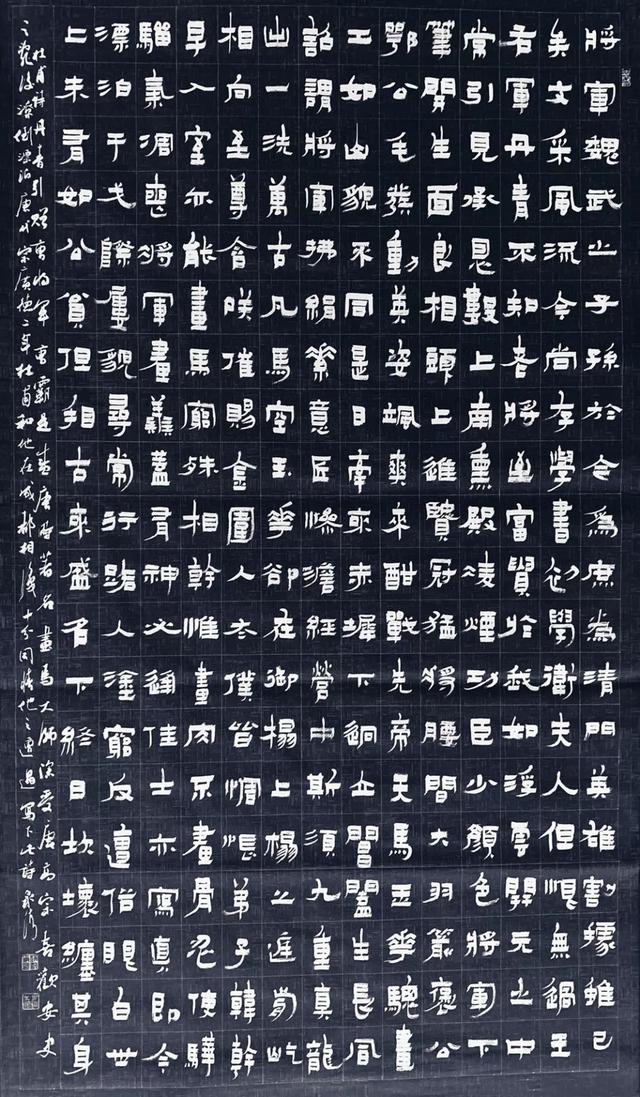 將軍魏武之子孫於今為庶為清門英雄割據雖已
矣文采風流今尚存學書初學衛夫人但恨無過王
右軍丹青不知老將至富貴於我如浮雲開元之中
常引見承恩數上南熏殿凌煙功臣少顏色將軍下
筆開生面良相頭上進賢冠猛將腰間大羽箭褒公
鄂公毛髮動英姿颯爽來酣戰先帝天馬玉華驄畫
工如山貌不同是日牽來赤墀下迥立閶闔生長風
詔謂將軍拂絹素意匠慘澹經營中斯須九重真龍
出一洗萬古凡馬空玉華卻在御榻上榻之庭前屹
相向至尊含咲催賜金圉人太僕皆惆悵弟子韓幹
早入室亦能畫馬窮殊相幹惟畫肉不畫骨忍使驊
騮氣凋喪將軍畫善蓋有神必逢佳士亦寫真即今
漂泊干戈際屢貌尋常行路人途窮反遭俗眼白世
上未有如公貧但看古來盛名下終日坎壈纏其身
杜甫詩丹青引贈曹將軍曹霸是盛唐時著名畫馬大師深受唐玄宗喜歡安史
之亂後潦倒漂泊唐代宗廣德二年杜甫和他在成都相識十分同情他之遭遇寫下此詩